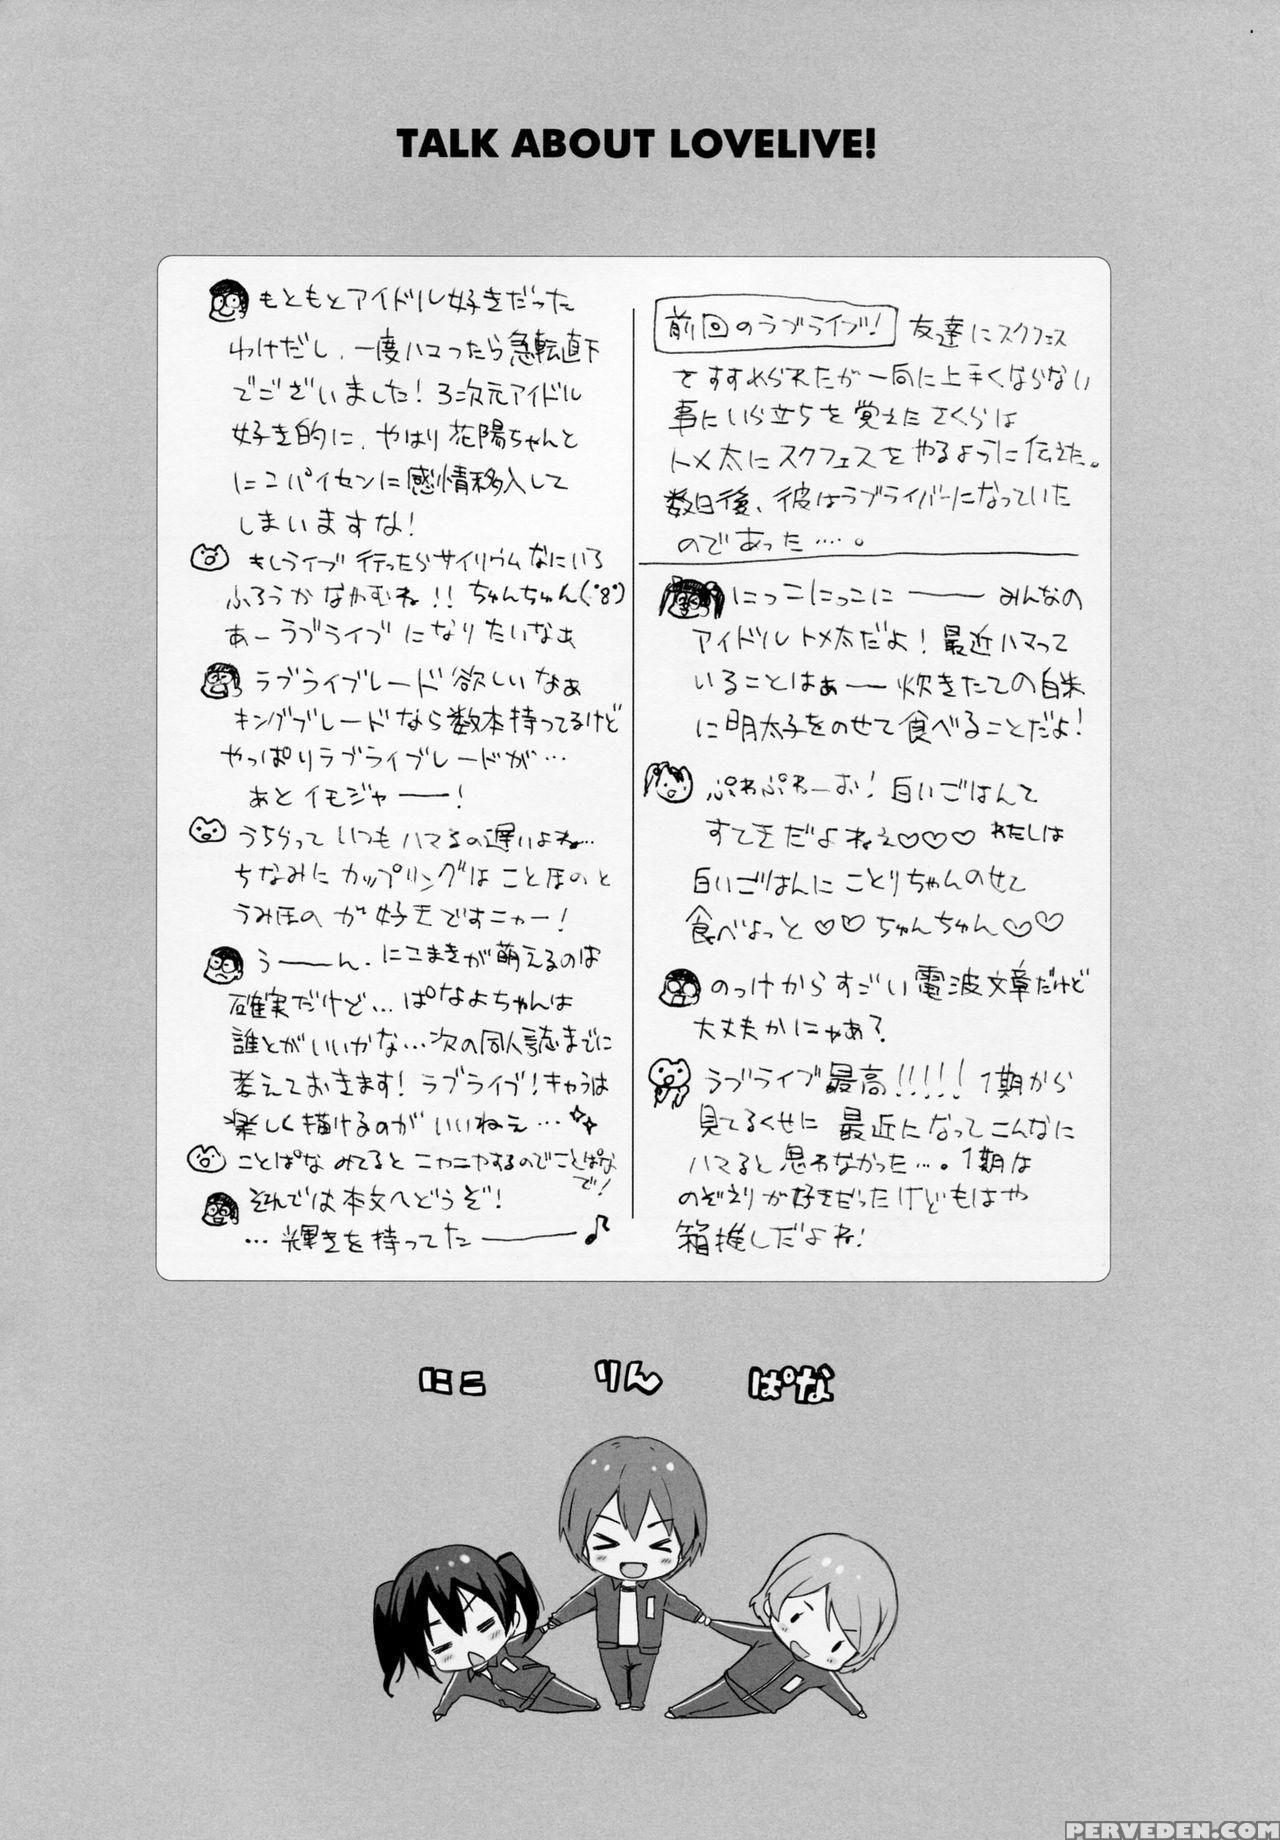 TALK ABOUT LOVELIVE!
前回のラブライブ! 友達にスクフェス
をすすめられたが一向に上手くならない
事にいら立ちを覚えたさくらは
トメ太にスクフェスをやるように伝えた。
数日後、彼はラブライバーになっていた
のであった・・・・。
にっこにっこに——— みんなの
アイドルトメ太だよ!最近ハマって
いることはぁ——炊きたての白米
に明太子をのせて食べることだよ!
ぷわぷわーお!白いごはんて
すてきだよねぇ♡♡♡ わたしは
白いごはんにことりちゃんのせて
食べよっと♡♡ちゅんちゅん♡♡
のっけからすごい電波文章だけど
大丈夫かにゃあ?
ラブライブ最高!!!!! 1期から
見てるくせに 最近になってこんなに
ハマると思わなかった…。1期は
のぞえりが好きだったけどもはや
箱推しだよね!
もともとアイドル好きだった
わけだし、一度ハマったら急転直下
でございました!3次元アイドル
好き的に、やはり花陽ちゃんと
にこパイセンに感情移入して
しまいますな!
もしライブ行ったらサイリウムなにいろ
ふろうかなかむね!! ちゅんちゅん(・8・)
あーラブライブになりたいなぁ
ラブライブレード欲しいなぁ
キングブレードなら数本持ってるけど
やっぱりラブライブレードが…
あとイモジャ——!
うちらっていつもハマるの遅いよね…
ちなみにカップリングはことほのと
うみほのが好きですニャー!
う——ん、にこまきが萌えるのは
確実だけど…ぱなよちゃんは
誰とがいいかな…次の同人誌までに
考えておきます!ラブライブ!キャラは
楽しく描けるのがいいねぇ…
ことぱなみてるとニヤニヤするのでことぱな
で!
それでは本文へどうぞ!
…輝きを持ってた———♪
にこ りん ぱな
PERVEDEN.COM